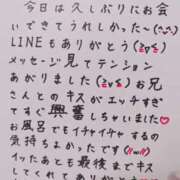 今日は久しぶりにお会
いできてうれしかった〜(^^)
LINEもありがとう(≧▽≦)
メッセージ見てテンション
あがりました(≧▽≦)お兄
さんとのキスがエッチすぎ
てすぐ興奮しちゃいました♥
お風呂でもイチャイチャするの
気持ちよかったです(//∇//)
イッたあとも最後までキス
してくれてありがとう